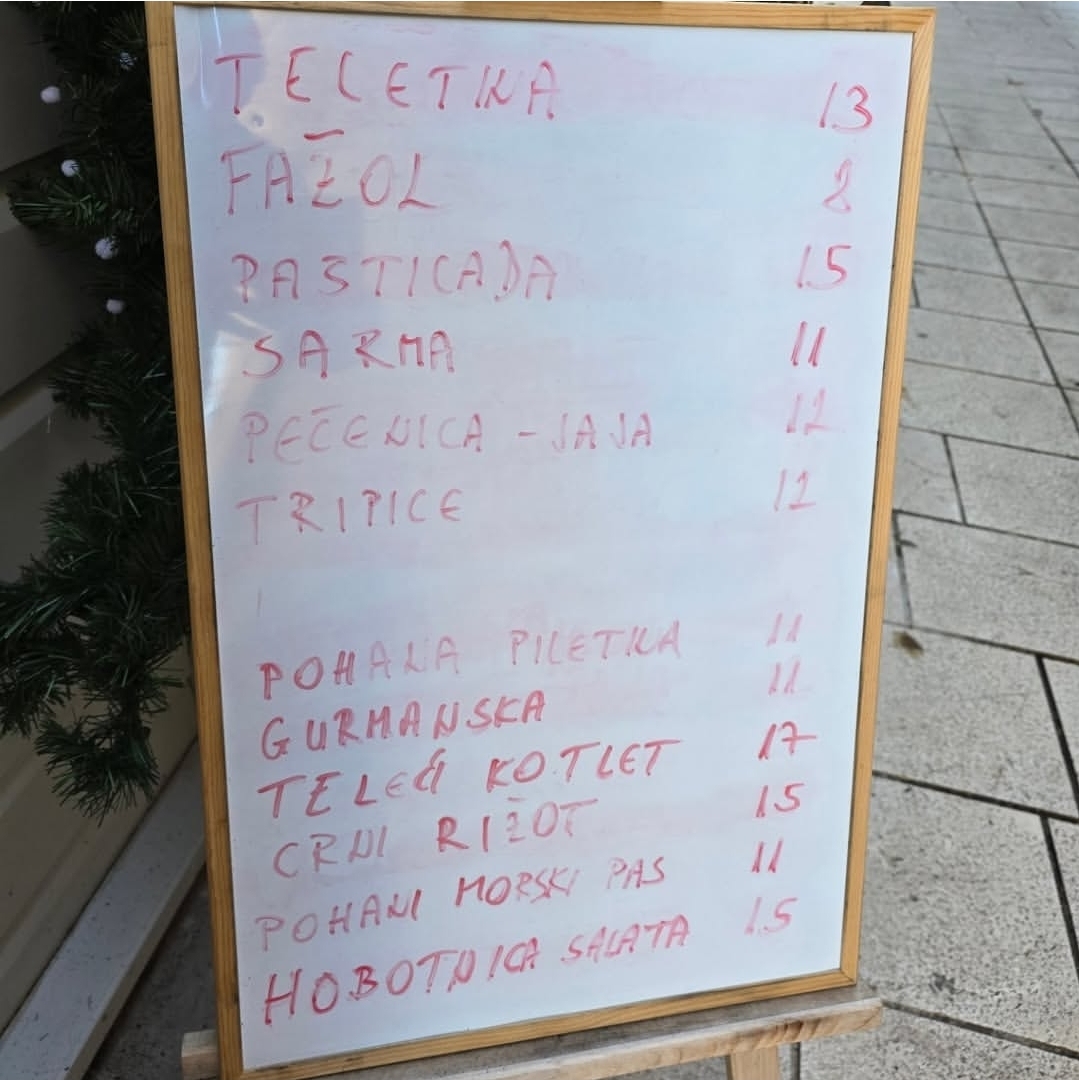 TELETINA 13
FAŽOL 8
PAŠTICADA 15
SARMA 11
PEČENICA - JAJA 12
TRIPICE 12
POHANA PILETINA 11
GURMANSKA 11
TELEĆI KOTLET 17
CRNI RIŽOT 15
POHANI MORSKI PAS 11
HOBOTNICA SALATA 15